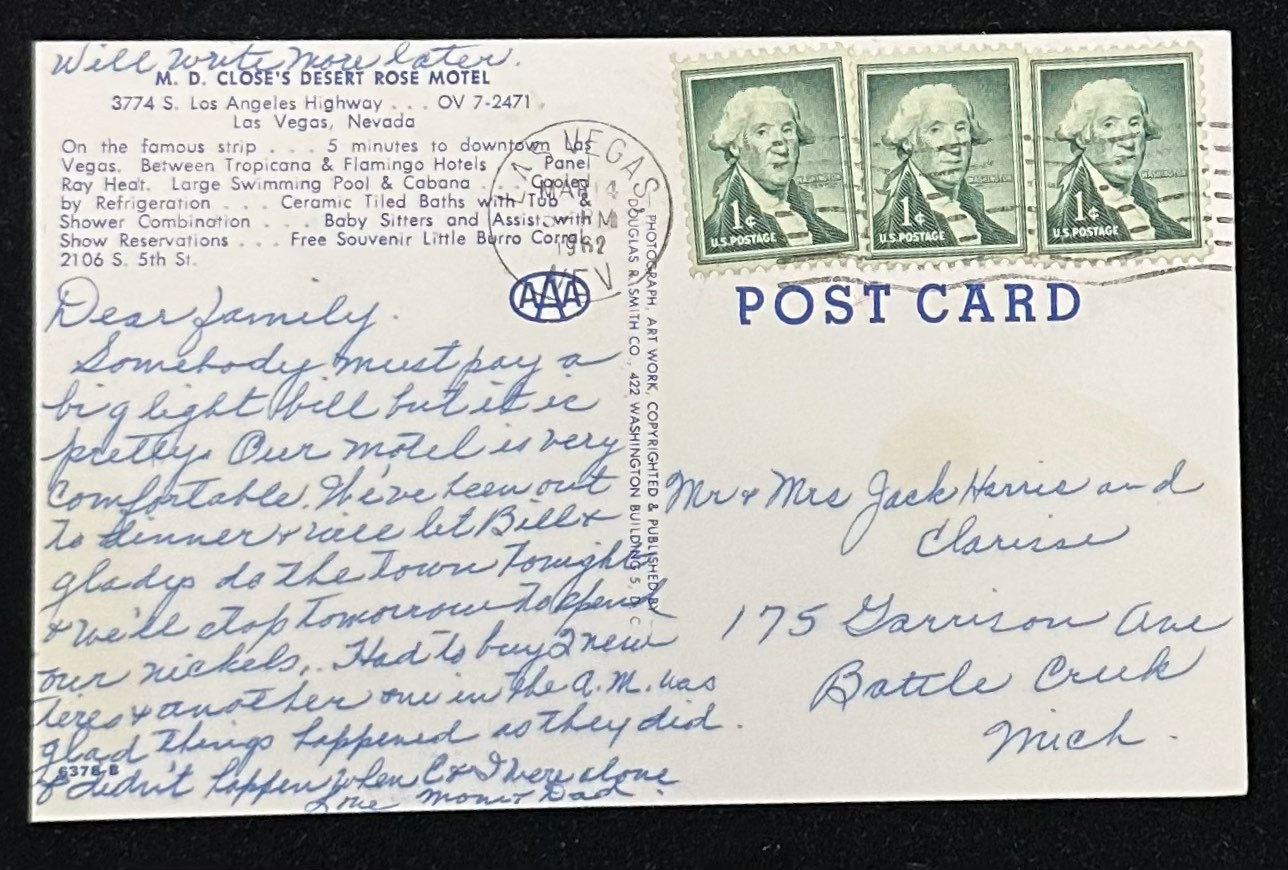 Will write more later.
M. D. CLOSE'S DESERT ROSE MOTEL
3774 S. Los Angeles Highway . . . OV 7-2471
Las Vegas, Nevada
On the famous strip . . . 5 minutes to downtown Las
Vegas. Between Tropicana & Flamingo Hotels . . . Panel
Ray Heat. Large Swimming Pool & Cabana . . . Cooled
by Refrigeration . . . Ceramic Tiled Baths with Tub &
Shower Combination . . . Baby Sitters and Assist with
Show Reservations . . . Free Souvenir Little Burro Corral.
2106 S. 5th St.
AAA
Dear family.
Somebody must pay a
big light bill but it is
pretty. Our motel is very
comfortable. We've been out
to dinner & will let Bill &
gladys do the town tonight
& we'll stop tomorrow to spend
our nickels. Had to buy 2 new
tires & another one in the A.M. was
glad things happened as they did
& didn't happen when C & I were alone.
Love Mom & Dad
6378-B
PHOTOGRAPH, ART WORK, COPYRIGHTED & PUBLISHED BY
DOUGLAS R. SMITH CO., 422 WASHINGTON BUILDING 5, D. C.
LAS VEGAS
MAR 14
PM
1962
NEV
WASHINGTON
1¢
U.S. POSTAGE
WASHINGTON
1¢
U.S. POSTAGE
WASHINGTON
1¢
U.S. POSTAGE
POST CARD
Mr & Mrs Jack Harris and
Clarisse
175 Garrison Ave
Battle Creek
Mich.